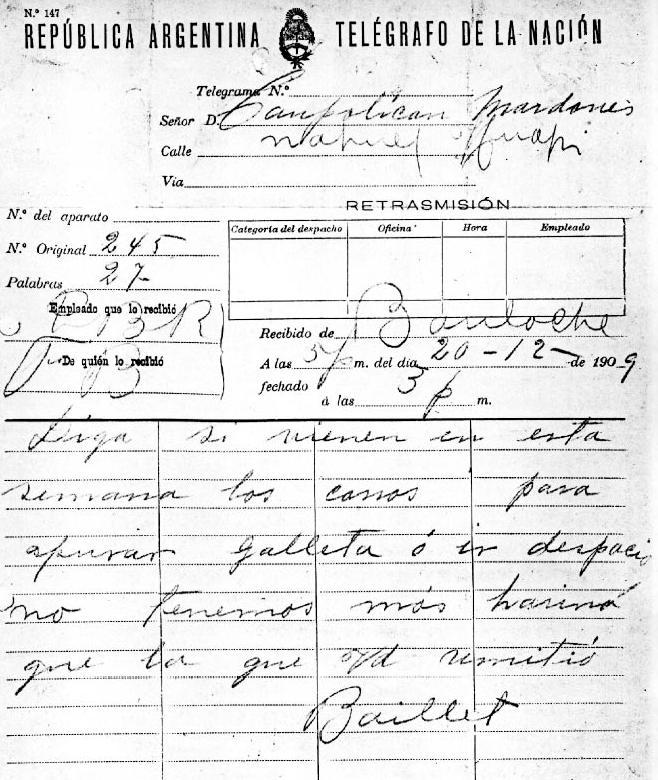 N.º 147
REPÚBLICA ARGENTINA TELÉGRAFO DE LA NACIÓN
Telegrama N.º
Señor D. Caupolican Mardones
Calle Nahuel Huapi
Vía
RETRASMISIÓN
N.º del aparato
Categoría del despacho Oficina Hora Empleado
N.º Original 245
Palabras 27
Empleado que lo recibió
Recibido de Bariloche
De quién lo recibió
A las 5 p m. del día 20-12- de 1909
fechado
á las 3 p m.
Diga si vienen en esta
semana los carros para
apurar galleta ó ir despacio
no tenemos más harina
que la que Vd remitió
Baillet